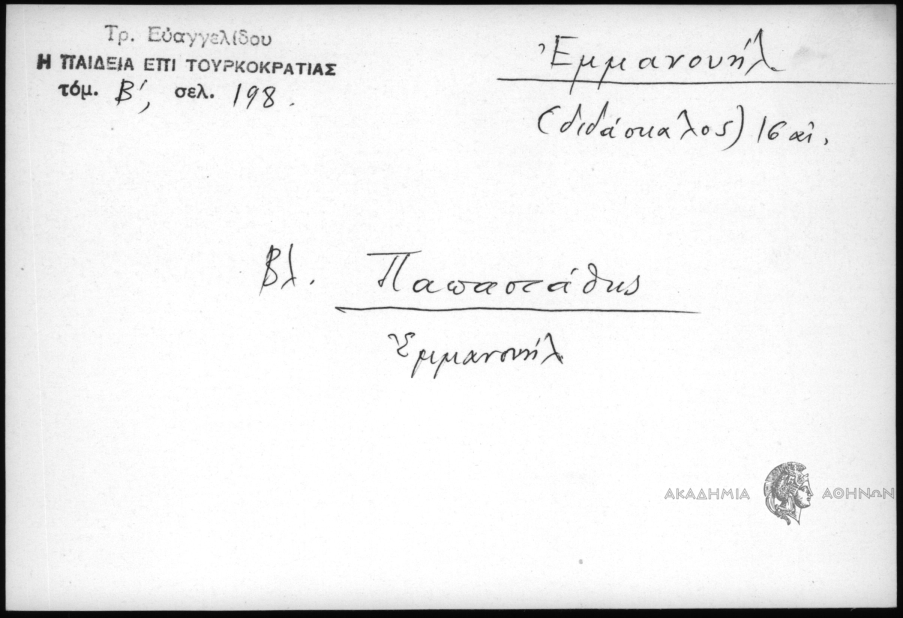 Τρ. Εὐαγγελίδου
Η ΠΑΙΔΕΙΑ ΕΠΙ ΤΟΥΡΚΟΚΡΑΤΙΑΣ
τόμ. Β΄, σελ. 198.
Ἐμμανουήλ
(διδάσκαλος) 16 αἰ.
Βλ. Παπαστάθης
Ἐμμανουήλ
ΑΚΑΔΗΜΙΑ ΑΘΗΝΩΝ